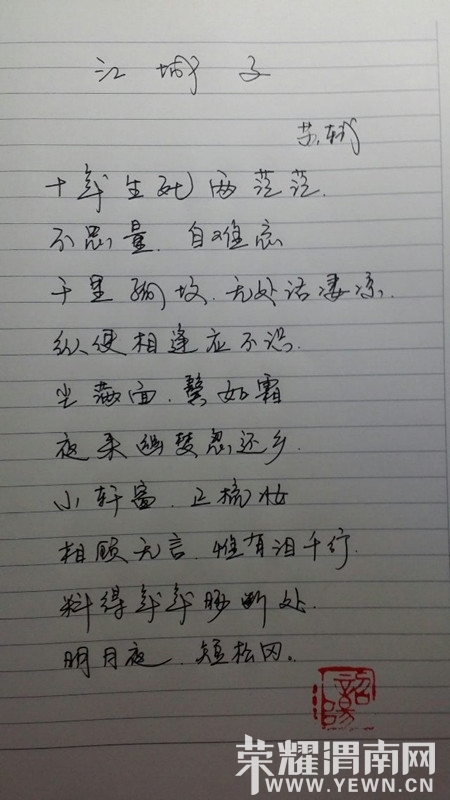 江城子
苏轼
十年生死两茫茫.
不思量.自难忘
千里孤坟.无处话凄凉.
纵使相逢应不识.
尘满面.鬓如霜
夜来幽梦忽还乡.
小轩窗.正梳妆
相顾无言.惟有泪千行.
料得年年肠断处.
明月夜.短松冈。
荣耀渭南网
WWW.YEWN.CN